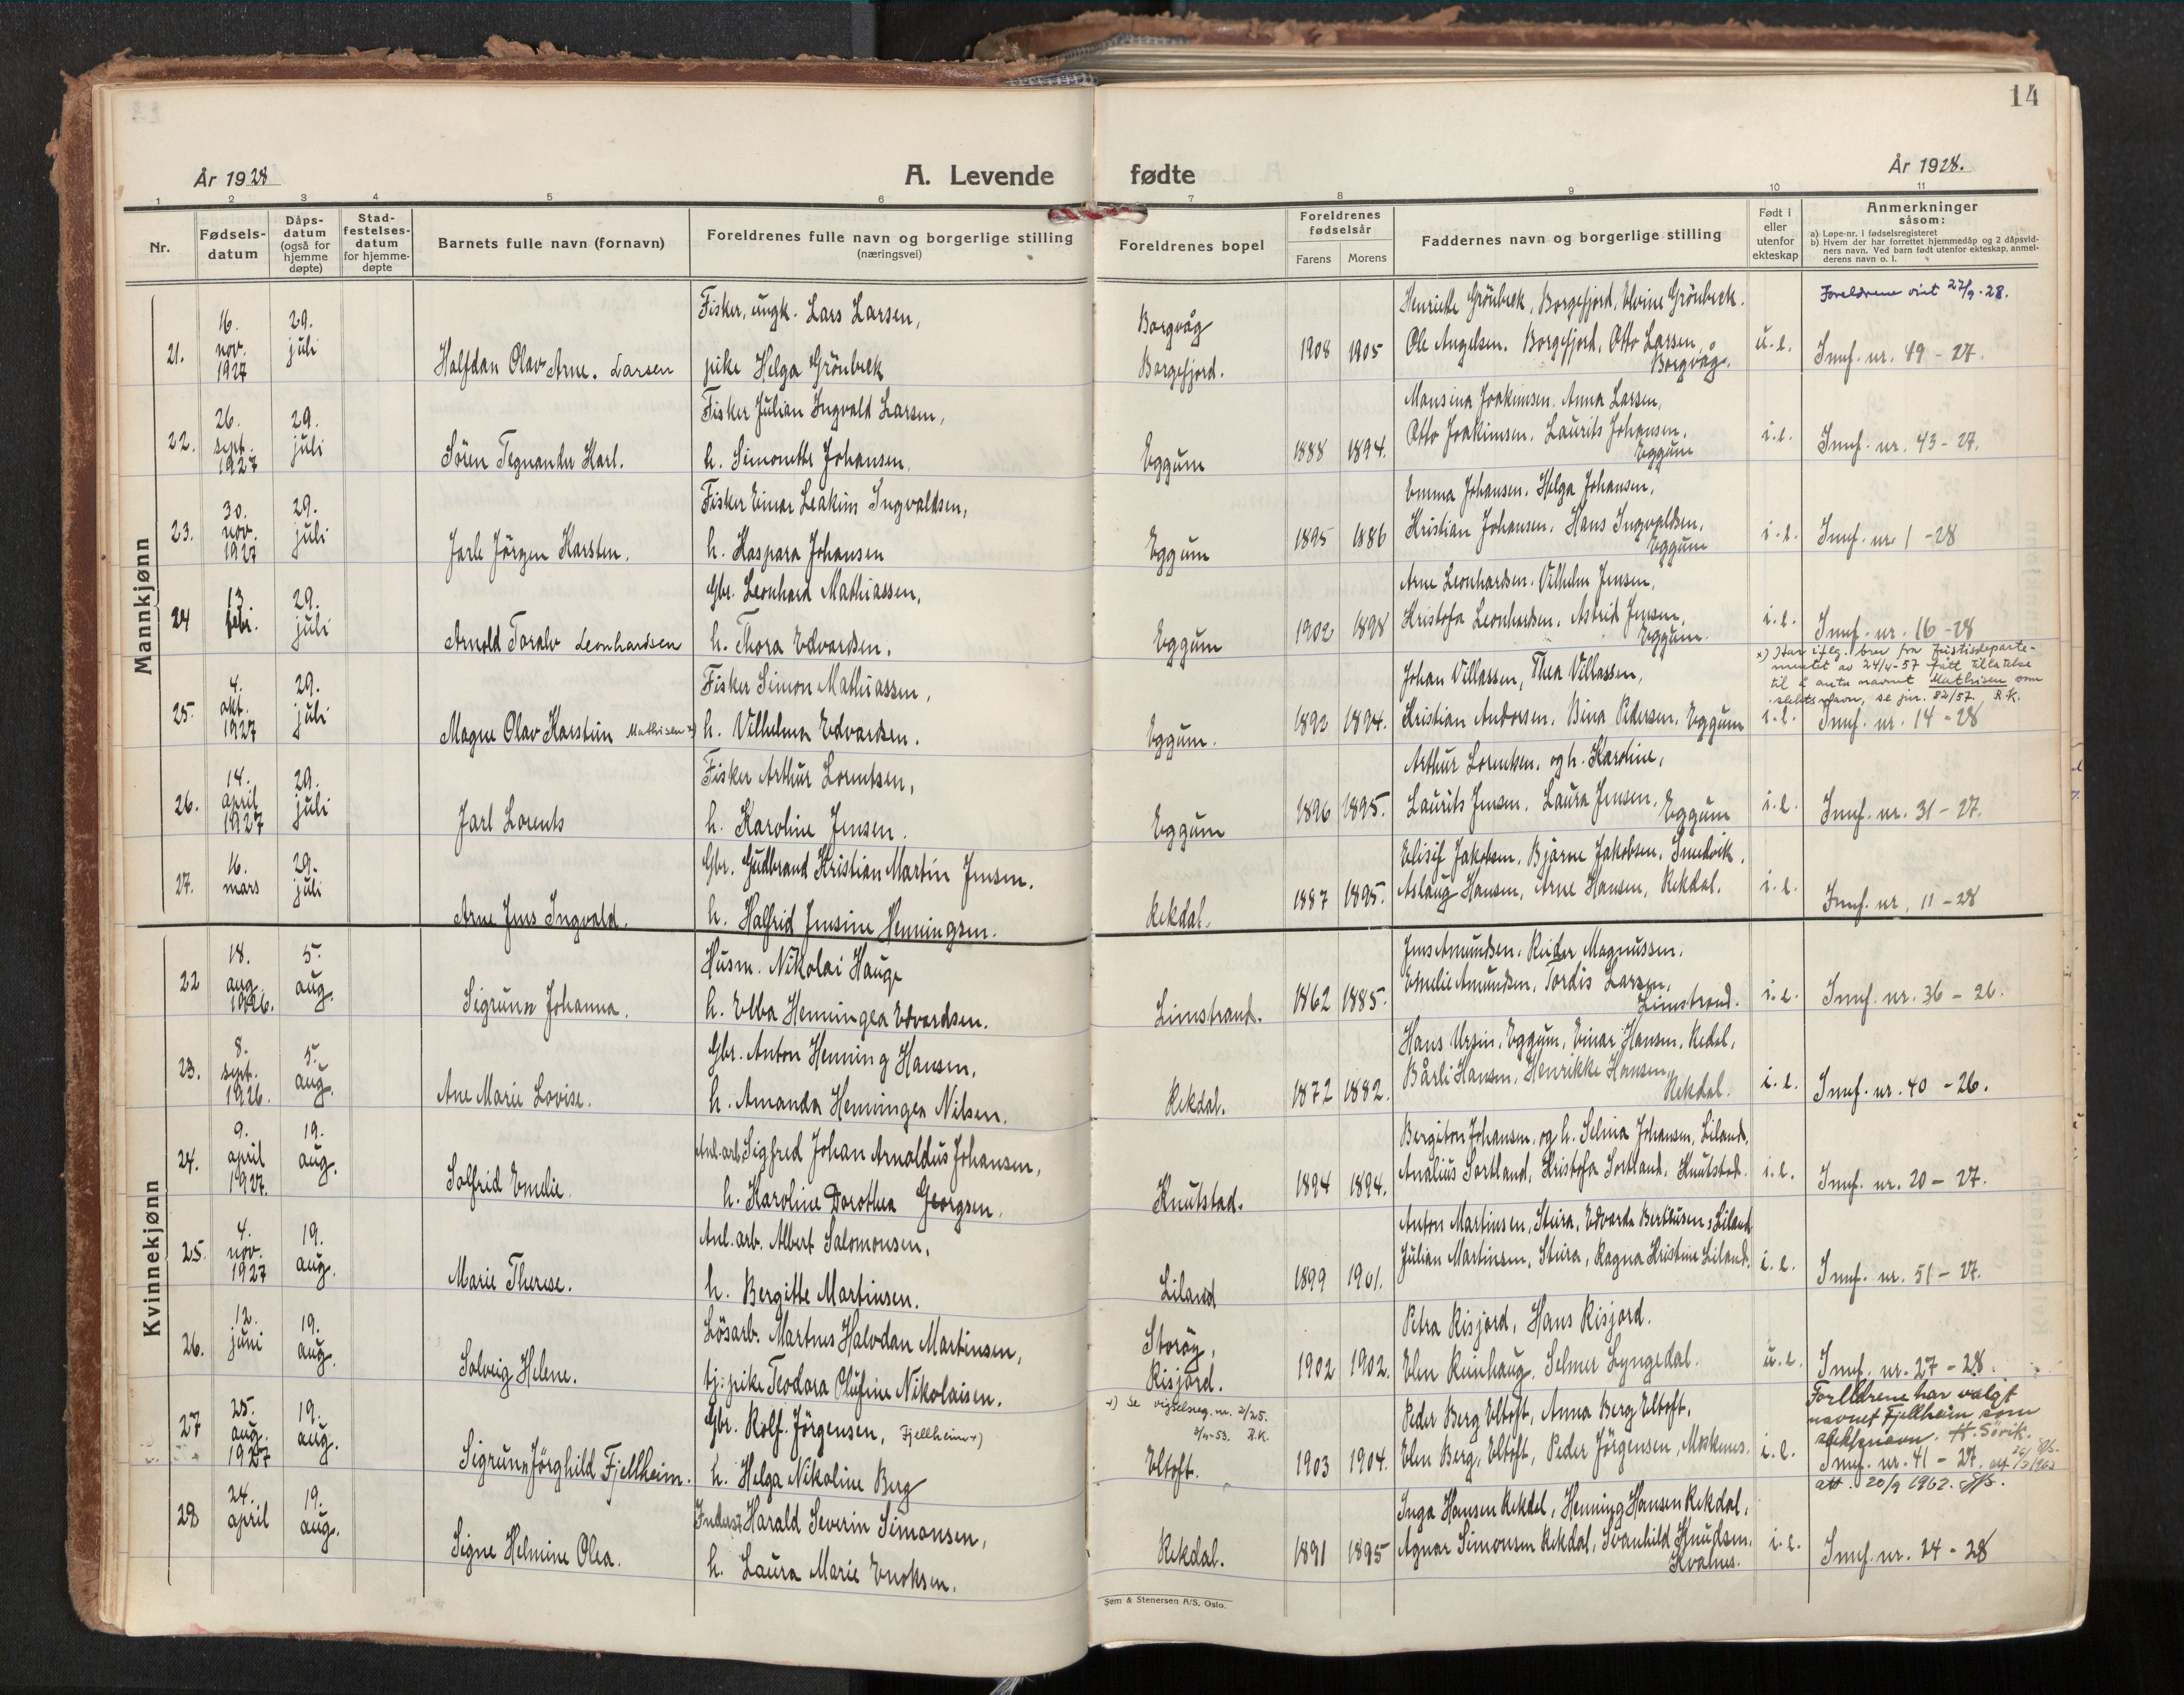 14
År 1928
A. Levende fødte
År 1928.
1 2 3 4 5 6 7 8 9 10 11
Nr.
Fødsels-
datum
Dåps-
datum
(også for
hjemme
døpte)
Stad-
festelses-
datum
for hjemme-
døpte
Barnets fulle navn (fornavn)
Foreldrenes fulle navn og borgerlige stilling
(næringsvei)
Foreldrenes bopel
Foreldrenes
fødselsår
Farens Morens
Faddernes navn og borgerlige stilling
Født i
eller
utenfor
ekteskap
Anmerkninger
såsom:
a) Løpe-nr. i fødselsregisteret
b) Hvem der har forrettet hjemmedåp og 2 dåpsvid-
ners navn. Ved barn født utenfor ekteskap, anmel-
derens navn o. l.
Mannkjønn
21.
16.
nov.
1927
29.
juli
Halfdan Olav Arne. Larsen
Fisker, ungk. Lars Larsen,
pike Helga Grönbeck
Borgvåg
Borgefjord.
1908 1905
Henriette Grönbeck, Borgefjord, Elvine Grönbeck.
Ole Angelsen. Borgefjord, Otto Larsen,
Borgvåg.
u.e.
Foreldrene viet 22/9-28.
Innf. nr. 49-27.
22.
26.
sept.
1927
29.
juli
Sören Tegnander Karl.
Fisker Julian Ingvald Larsen,
h. Simonette Johansen.
Eggum
1888 1894.
Mansina Joakimsen, Anna Larsen,
Otto Joakimsen. Laurits Johansen.
Eggum
i.e.
Innf. nr. 43-27.
23.
30.
nov.
1927
29.
juli
Jarle Jörgen Karsten.
Fisker Einar Leakim Ingvaldsen,
h. Kaspara Johansen
Eggum
1895 1886
Emma Johansen. Helga Johansen,
Kristian Johansen. Hans Ingvaldsen,
Eggum
i.e.
Innf. nr. 1-28
24
13.
febr.
29.
juli
Arnold Toralv Leonhardsen
Gbr. Leonhard Mathiassen,
h. Thora Edvardsen.
Eggum
1902 1898
Arne Leonhardsen. Vilhelm Jensen,
Kristofa Leonhardsen. Astrid Jensen,
Eggum.
i.e.
Innf. nr. 16-28
25.
4.
okt.
1927
29.
juli
Magne Olav Karstein Mathisen x)
Fisker Simon Mathiassen,
h. Vilhelma Edvardsen.
Eggum.
1892 1894.
Johan Villassen, Thea Villassen,
Kristian Andorsen. Bina Pedersen. Eggum
i.e.
x) Har iflg. brev fra Justisdeparte-
mentet av 24/4-57 fått tillatelse
til å anta navnet Mathisen som
slektsnavn, se jnr. 82/57. R.K.
Innf. nr. 14-28
26.
14.
april
1927
29.
juli
Jarl Lorents
Fisker Arthur Lorentsen,
h. Karoline Jensen.
Eggum
1896 1895.
Arthur Lorentsen, og h. Karoline,
Laurits Jensen. Laura Jensen. Eggum
i.e.
Innf. nr. 31-27.
27.
16.
mars
29.
juli
Arne Jens Ingvald.
Gbr. Gudbrand Kristian Martin Jensen.
h. Halfrid Jensine Henningsen.
Rekdal.
1887 1895.
Elisif Jakobsen. Bjarne Jakobsen. Smedvik.
Aslaug Hansen, Arne Hansen, Rekdal.
i.e.
Innf. nr. 11-28
Kvinnekjønn
22
18.
aug.
1926.
5.
aug.
Sigrunn Johanna.
Husm. Nikolai Hauge
h. Ebba Henningea Edvardsen.
Limstrand.
1862 1885.
Jens Amundsen. Reidar Magnussen.
Emelie Amundsen, Tordis Larsen,
Limstrand.
i.e.
Innf. nr. 36-26.
23.
8.
sept.
1926.
5.
aug.
Ane Marie Lovise.
Gbr. Anton Henning Hansen,
h. Amanda Henningea Nilsen.
Rekdal.
1872 1882.
Hans Ursin, Eggum, Einar Hansen. Redal,
Bårli Hansen, Henrikke Hansen,
Rekdal.
i.e.
Innf. nr. 40-26.
24.
9.
april
1927.
19.
aug.
Solfrid Emelie.
Anl.arb. Sigfred Johan Arnoldus Johansen,
h. Karoline Dorothea Georgsen.
Knutstad.
1894 1894.
Bergiton Johansen, og h. Selina Johansen, Liland.
Analius Sortland, Kristofa Sortland. Knutstad.
i.e.
Innf. nr. 20-27.
25.
4.
nov.
1927
19.
aug.
Marie Therese.
Anl. arb. Albert Salomonsen,
h. Bergitte Martinsen.
Liland
1899 1901.
Anton Martinsen, Steira, Edvarda Berthusen, Liland
Julian Martinsen, Steira, Ragna Kristine Liland.
i.e.
Innf. nr. 51-27.
26.
12.
juni
19.
aug.
Solveig Helene.
Lösarb. Martnus Halvdan Martinsen,
tj. pike Teodora Olufine Nikolaisen.
Storöy,
Risjord.
1902 1902.
Petra Risjord, Hans Risjord.
Elen Reinhaug. Selmer Lyngedal.
u.e.
Innf. nr. 27-28.
27
25.
aug.
1927
19.
aug.
Sigrunn Jörghild Fjellheim.
Gbr. Rolf. Jörgensen, Fjellheim +)
h. Helga Nikoline Berg
+) Se vigselreg. nr. 2/25.
3/11-53. R.K.
Eltoft.
1903 1904.
Peder Berg Eltoft, Anna Berg Eltoft,
Elen Berg, Eltoft, Peder Jörgensen, Moskenes.
i.e.
Forlldrene har valgt
navnet Fjellheim som
slektsnavn. H. Sörvik.
Innf. nr. 41-27.
att. 20/9 1962.
28
24.
april
19.
aug.
Signe Helmine Olea.
Inderst Harald Severin Simonsen,
h. Laura Marie Enoksen.
Rekdal.
1891 1895
Inga Hansen Rekdal, Henning Hansen Rekdal,
Agnar Simonsen Rekdal, Svanhild Knudsen,
Kvalnes.
i.e.
Innf. nr. 24-28
Sem & Stenersen A/S, Oslo.